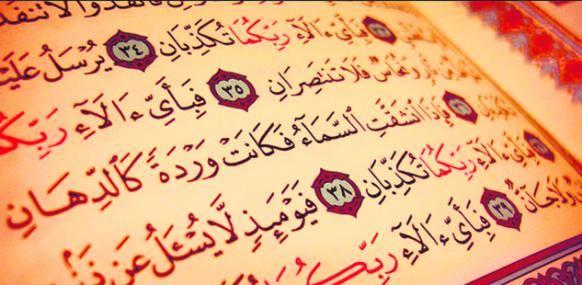 لَا تَنفُذُ
فَبِأَيِّ ءَالَآءِ رَبِّكُمَا تُكَذِّبَانِ ٣٤ يُرْسَلُ عَلَيْ
نَّارٍ وَنُحَاسٌ فَلَا تَنتَصِرَانِ ٣٥ فَبِأَيِّ ءَالَآءِ رَبِّكُ
تُكَذِّبَانِ ٣٦ فَإِذَا ٱنشَقَّتِ ٱلسَّمَآءُ فَكَانَتْ وَرْدَةً كَٱلدِّهَانِ
فَبِأَيِّ ءَالَآءِ رَبِّكُمَا تُكَذِّبَانِ ٣٨ فَيَوْمَئِذٍ لَّا يُسْـَٔلُ عَن ذَنۢ
وَلَا جَآنٌّ ٣٩ فَبِأَيِّ ءَالَآءِ رَبِّكُمَا